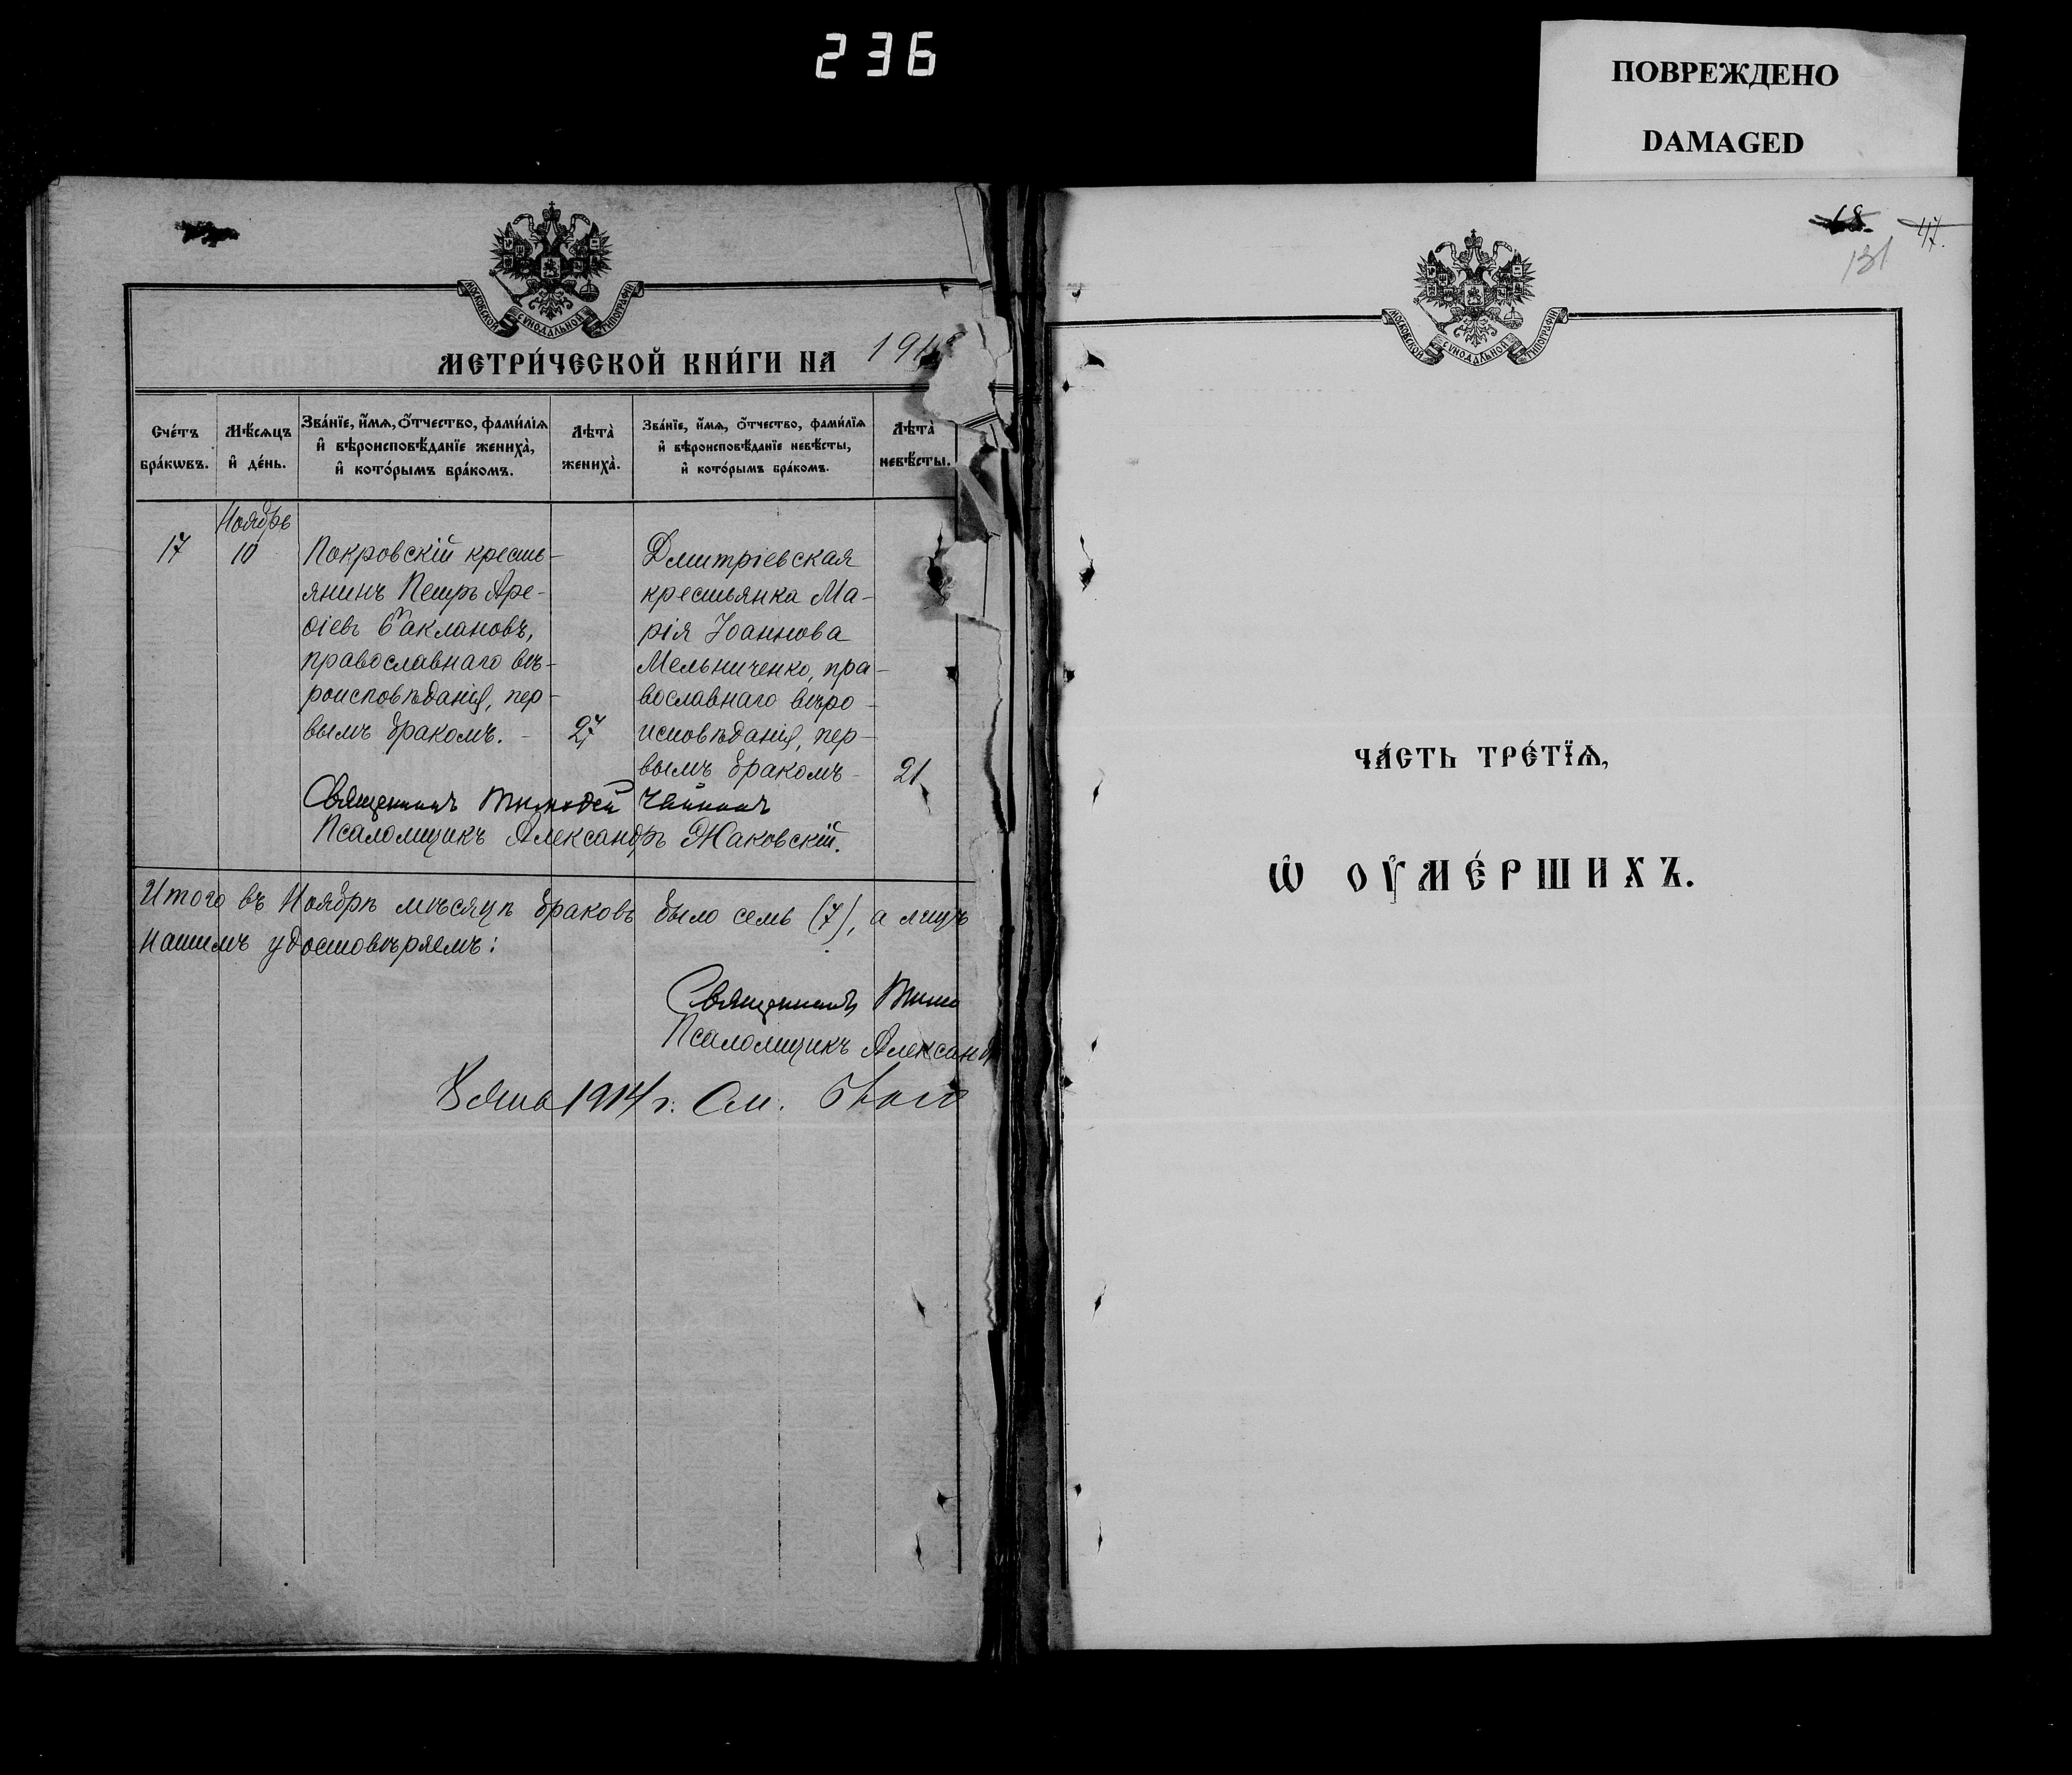 236
ПОВРЕЖДЕНО
DAMAGED
МОСКОВСКОЙ СѴНОДАЛЬНОЙ ТИПОГРАФІИ
МЕТРИ́ЧЕСКОЙ КНИ́ГИ НА
Сче́тъ бра́кѡвъ.
Мѣ́сѧцъ и҆ де́нь.
Зва́нїе, и҆́мѧ, ѻ҆́тчество, фами́лїѧ и҆ вѣроисповѣ́данїе жениха̀, и҆ кото́рымъ бра́комъ.
Лѣта̀ жениха̀.
Зва́нїе, и҆́мѧ, ѻ҆́тчество, фами́лїѧ и҆ вѣроисповѣ́данїе невѣ́сты, и҆ кото́рымъ бра́комъ.
Лѣта̀ невѣ́сты.
Ноябрь
17
10
Покровскій кресть-
янинъ Петръ Аре-
ѳіевъ Баклановъ,
православнаго вѣ-
роисповѣданія, пер-
вымъ бракомъ. -
27
Дмитріевская
крестьянка Ма-
рія Іоаннова
Мельниченко, пра-
вославнаго вѣро-
исповѣданія, пер-
вымъ бракомъ -
21
Священникъ Тимоѳей
Псаломщикъ Александръ Жаковскій.
Итого въ Ноябрѣ мѣсяцѣ браковъ было семь (7), а лицъ
нашимъ удостовѣряемъ:
Священникъ Тимо
Псаломщикъ Александ
1914 г.
68.
47.
131
МОСКОВСКОЙ СѴНОДАЛЬНОЙ ТИПОГРАФІИ
ЧА́СТЬ ТРЕ́ТЇѦ,
Ѡ҆ ОУ҆МЕ́РШИХЪ.